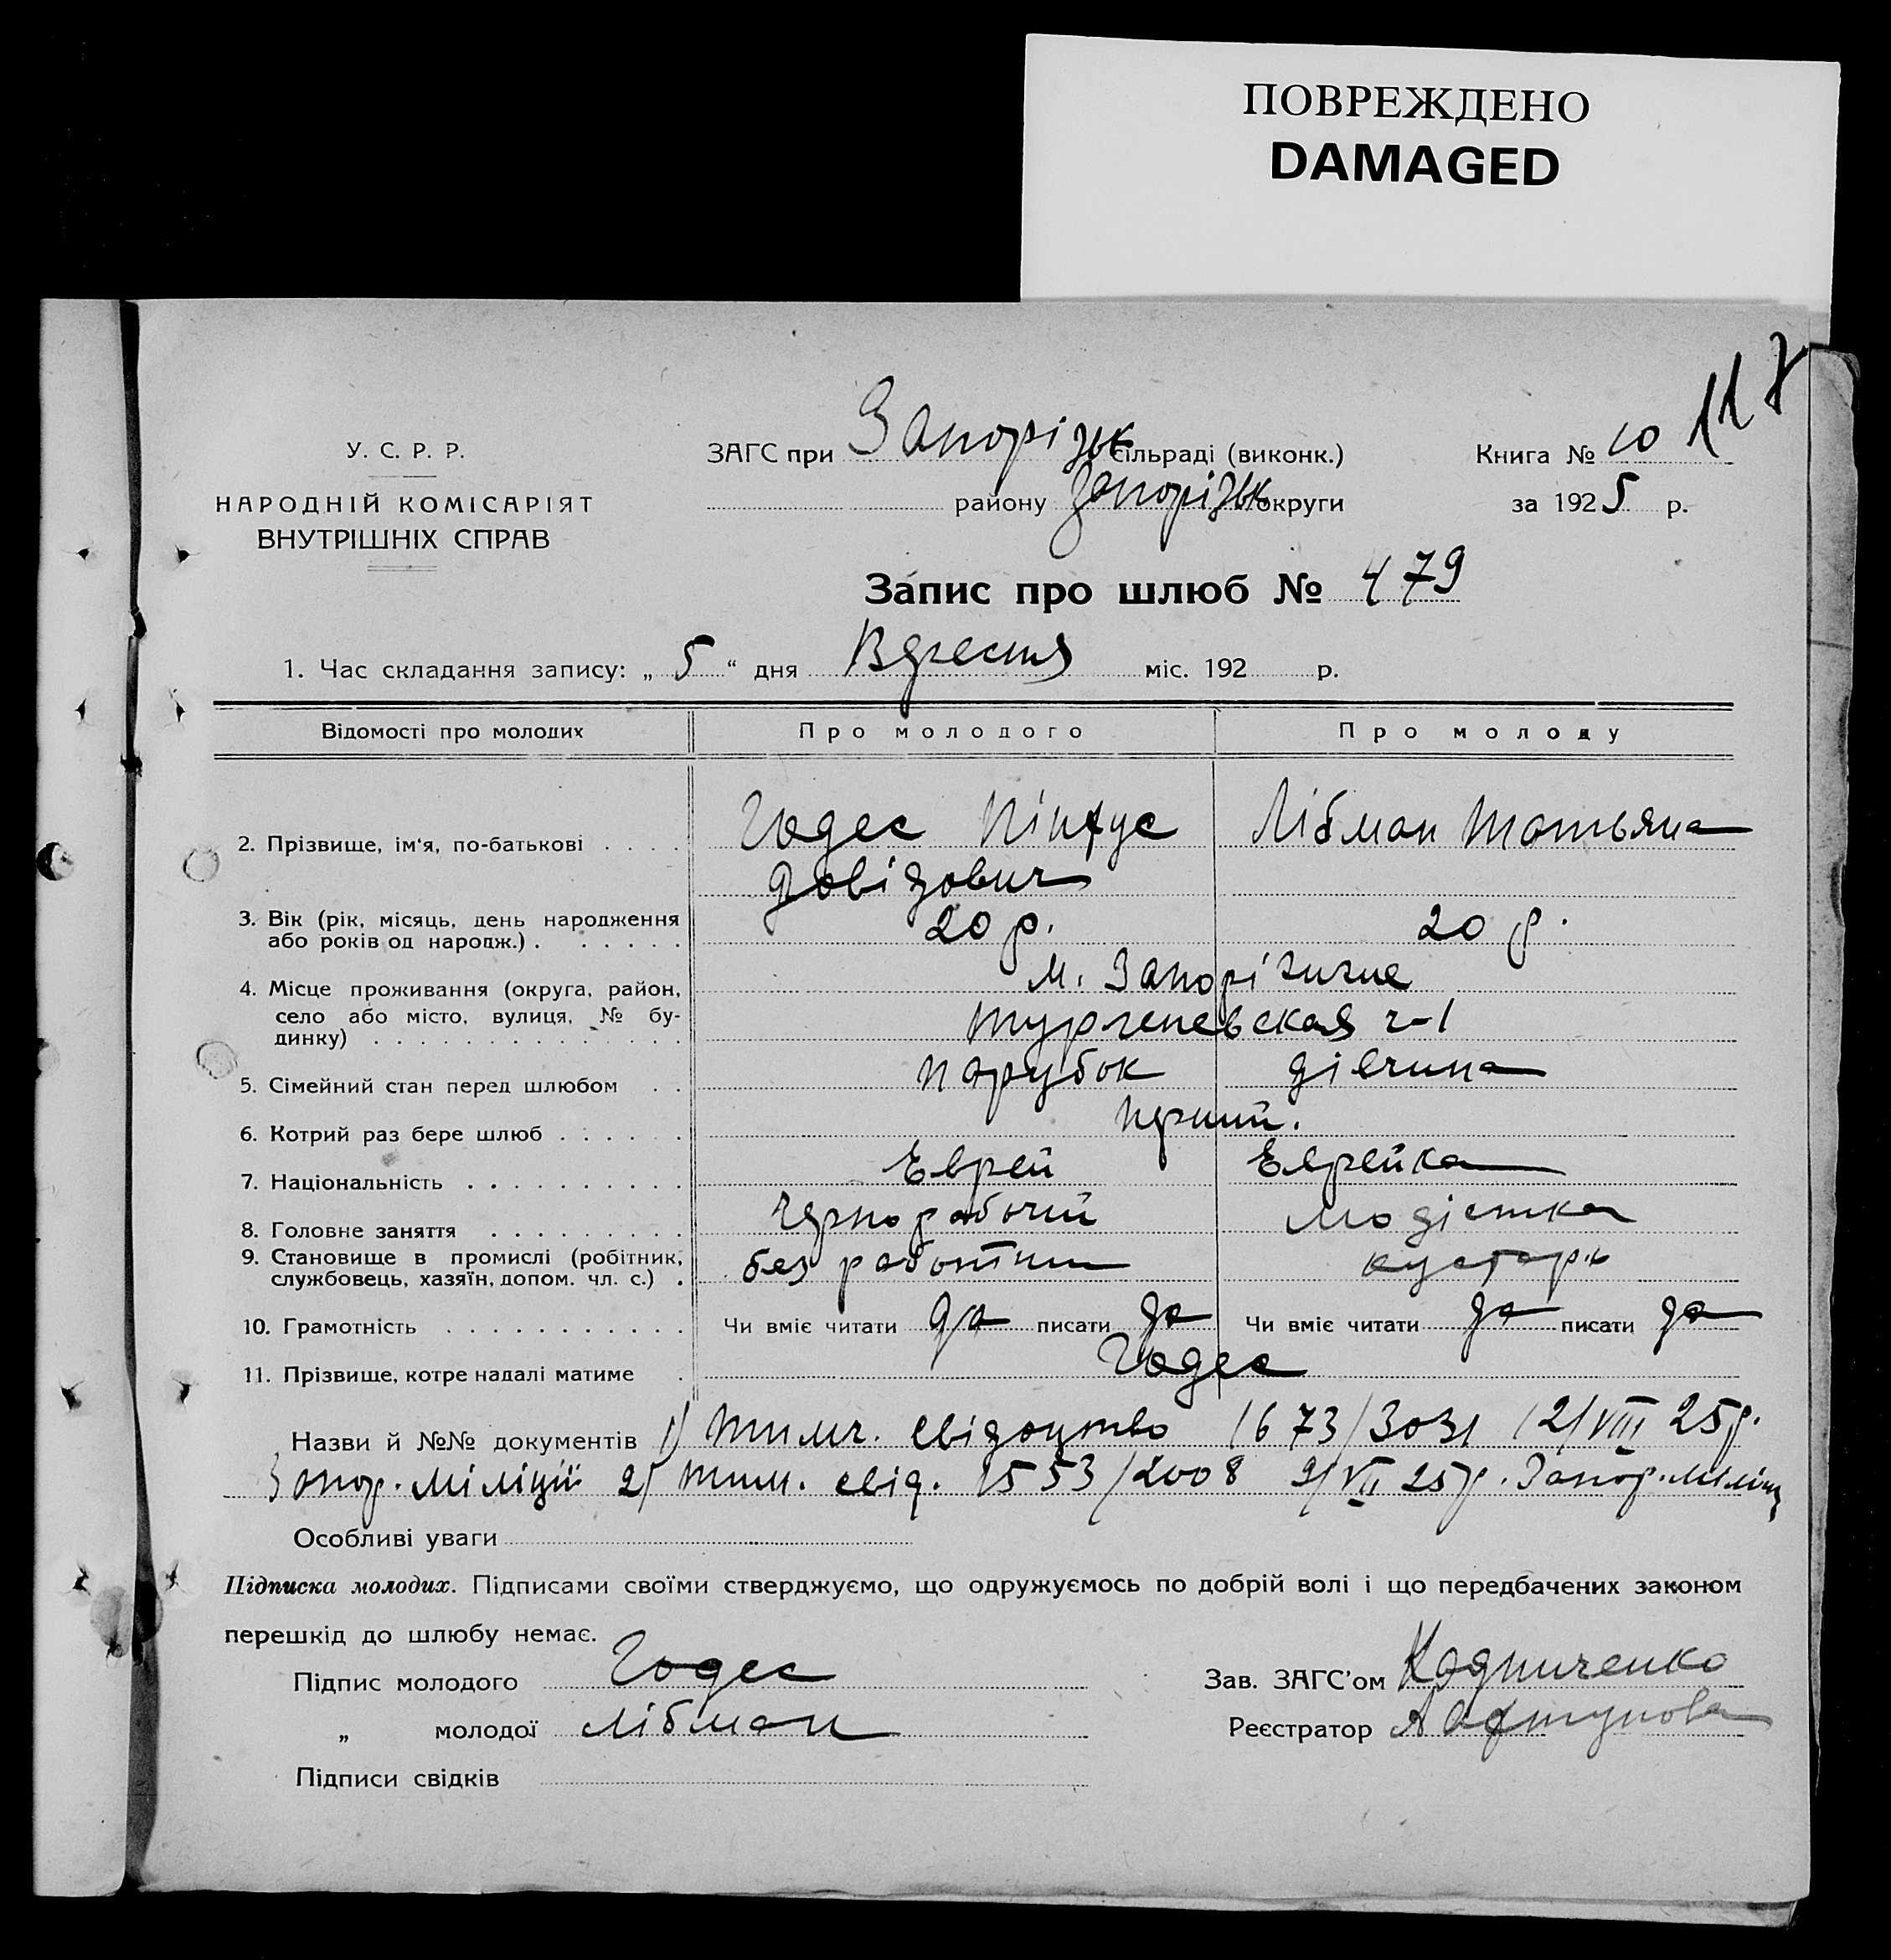 ПОВРЕЖДЕНО
DAMAGED
117
У. С. Р. Р.
НАРОДНІЙ КОМІСАРІЯТ
ВНУТРІШНІХ СПРАВ
ЗАГС при Запорізьк сільраді (виконк.)
району Запорізьк округи
Книга № 10
за 1925 р.
Запис про шлюб № 479
1. Час складання запису: „ 5 “ дня Вересня міс. 192 р.
Відомості про молодих Про молодого Про молоду
2. Прізвище, ім'я, по-батькові . . . . Годес Пінхус Лібман Татьяна
Довідович
3. Вік (рік, місяць, день народження
або років од народж.) . . . . . . 20 р. 20 р.
4. Місце проживання (округа, район, м. Запоріжже
село або місто, вулиця, № бу- Тургеневская ч-1
динку) . . . . . . . . . . . . . . .
5. Сімейний стан перед шлюбом . . парубок дівчина
6. Котрий раз бере шлюб . . . . . . перший.
7. Національність . . . . . . . . . . Еврей Еврейка
8. Головне заняття . . . . . . . . . Чернорабочий модістка
9. Становище в промислі (робітник,
службовець, хазяїн, допом. чл. с.) . без работи кустарь
10. Грамотність . . . . . . . . . . . Чи вміє читати да писати да Чи вміє читати да писати да
11. Прізвище, котре надалі матиме . Годес
Назви й №№ документів 1) тимч. свідоцтво 1673/3031 12/VIII 25р.
Запор. міліції 2/ тим. свід. 1553/2008 9/VII 25р. Запор. міліц
Особливі уваги
Підписка молодих. Підписами своїми стверджуємо, що одружуємось по добрій волі і що передбачених законом
перешкід до шлюбу немає.
Підпис молодого Годес
„ молодої Лібман
Підписи свідків
Зав. ЗАГС'ом
Реєстратор